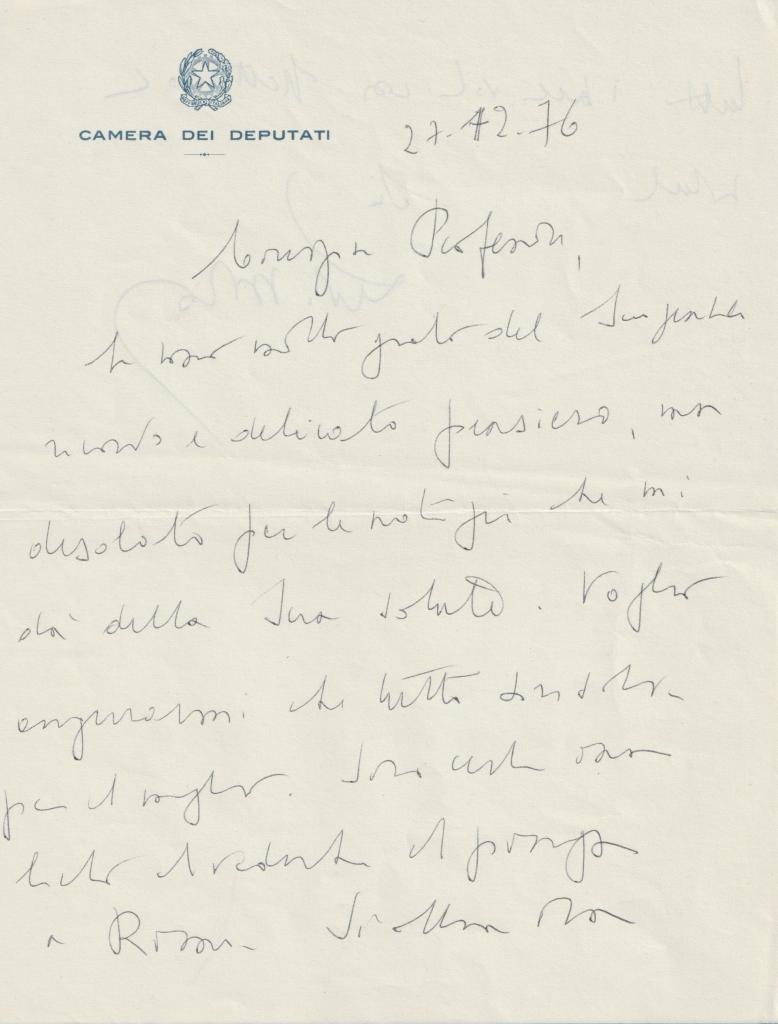 CAMERA DEI DEPUTATI
27.12.76
Professore,
Le sono molto grato del Suo gentile
ricordo e delicato pensiero, ma
desolato per le notizie che mi
dà della Sua salute. Voglio
augurarmi che tutto si risolva
per il meglio. Sarò
lieto di vederLa
a Roma.